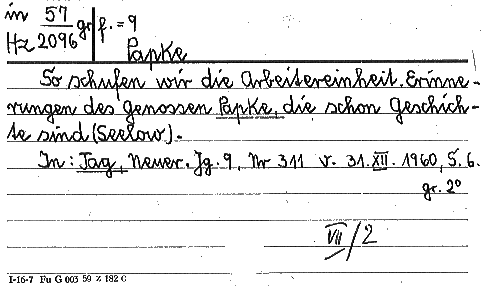 in 57 gr f. = 9
Hz 2096
Papke
So schufen wir die Arbeitereinheit. Erinne-
rungen des Genossen Papke, die schon Geschich-
te sind (Seelow).
In: Tag, Neuer. Jg. 9, Nr 311 v. 31. XII. 1960, S. 6.
gr. 2°
VII/2
I-16-7 Fu G 003 59 Z 182 C